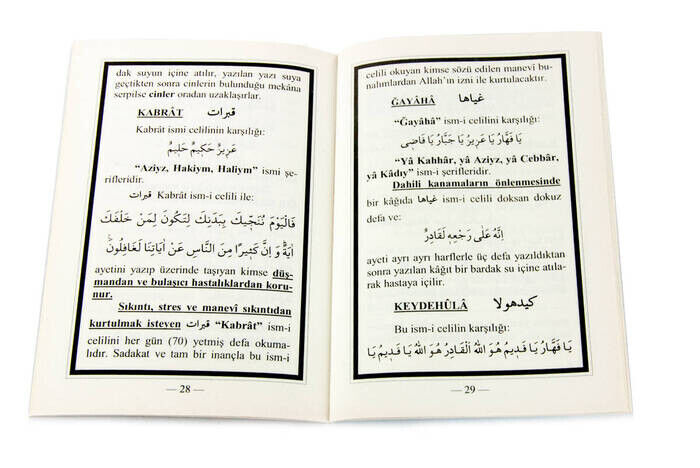 dak suyun içine atılır, yazılan yazı suya
geçtikten sonra cinlerin bulunduğu mekâna
serpilse cinler oradan uzaklaşırlar.
KABRÂT قبرات
Kabrât ismi celilinin karşılığı:
عَزِيزٌ حَكِيمٌ حَلِيمٌ
"Aziyz, Hakiym, Haliym" ismi şe-
rifleridir.
قبرات Kabrât ism-i celili ile:
فَالْيَوْمَ نُنَجِّيكَ بِبَدَنِكَ لِتَكُونَ لِمَنْ خَلْفَكَ
اٰيَةً وَ اِنَّ كَثِيرًا مِنَ النَّاسِ عَنْ اٰيَاتِنَا لَغَافِلُونَ
ayetini yazıp üzerinde taşıyan kimse düş-
mandan ve bulaşıcı hastalıklardan koru-
nur.
Sıkıntı, stres ve manevî sıkıntıdan
kurtulmak isteyen قبرات "Kabrât" ism-i
celilini her gün (70) yetmiş defa okuma-
lıdır. Sadakat ve tam bir inançla bu ism-i
— 28 —
celili okuyan kimse sözü edilen manevi bu-
nalımlardan Allah'ın izni ile kurtulacaktır.
ĞAYÂHÂ غياها
"Ğayâhâ" ism-i celilin karşılığı:
يَا قَهَّارُ يَا عَزِيزُ يَا جَبَّارُ يَا قَاضِى
"Yâ Kahhâr, yâ Aziyz, yâ Cebbâr,
yâ Kâdıy" ism-i şerifleridir.
Dahili kanamaların önlenmesinde
bir kâğıda غياها ism-i celili doksan dokuz
defa ve:
اِنَّهُ عَلٰى رَجْعِهِ لَقَادِرٌ
ayeti ayrı ayrı harflerle üç defa yazıldıktan
sonra yazılan kâğıt bir bardak su içine atıla-
rak hastaya içilir.
KEYDEHÛLÂ كيدهولا
Bu ism-i celilin karşılığı:
يَا قَهَّارُ يَا قَدِيمُ هُوَ اللّٰهُ الْقَادِرُ هُوَ اللّٰهُ يَا قَدِيمُ يَا
— 29 —